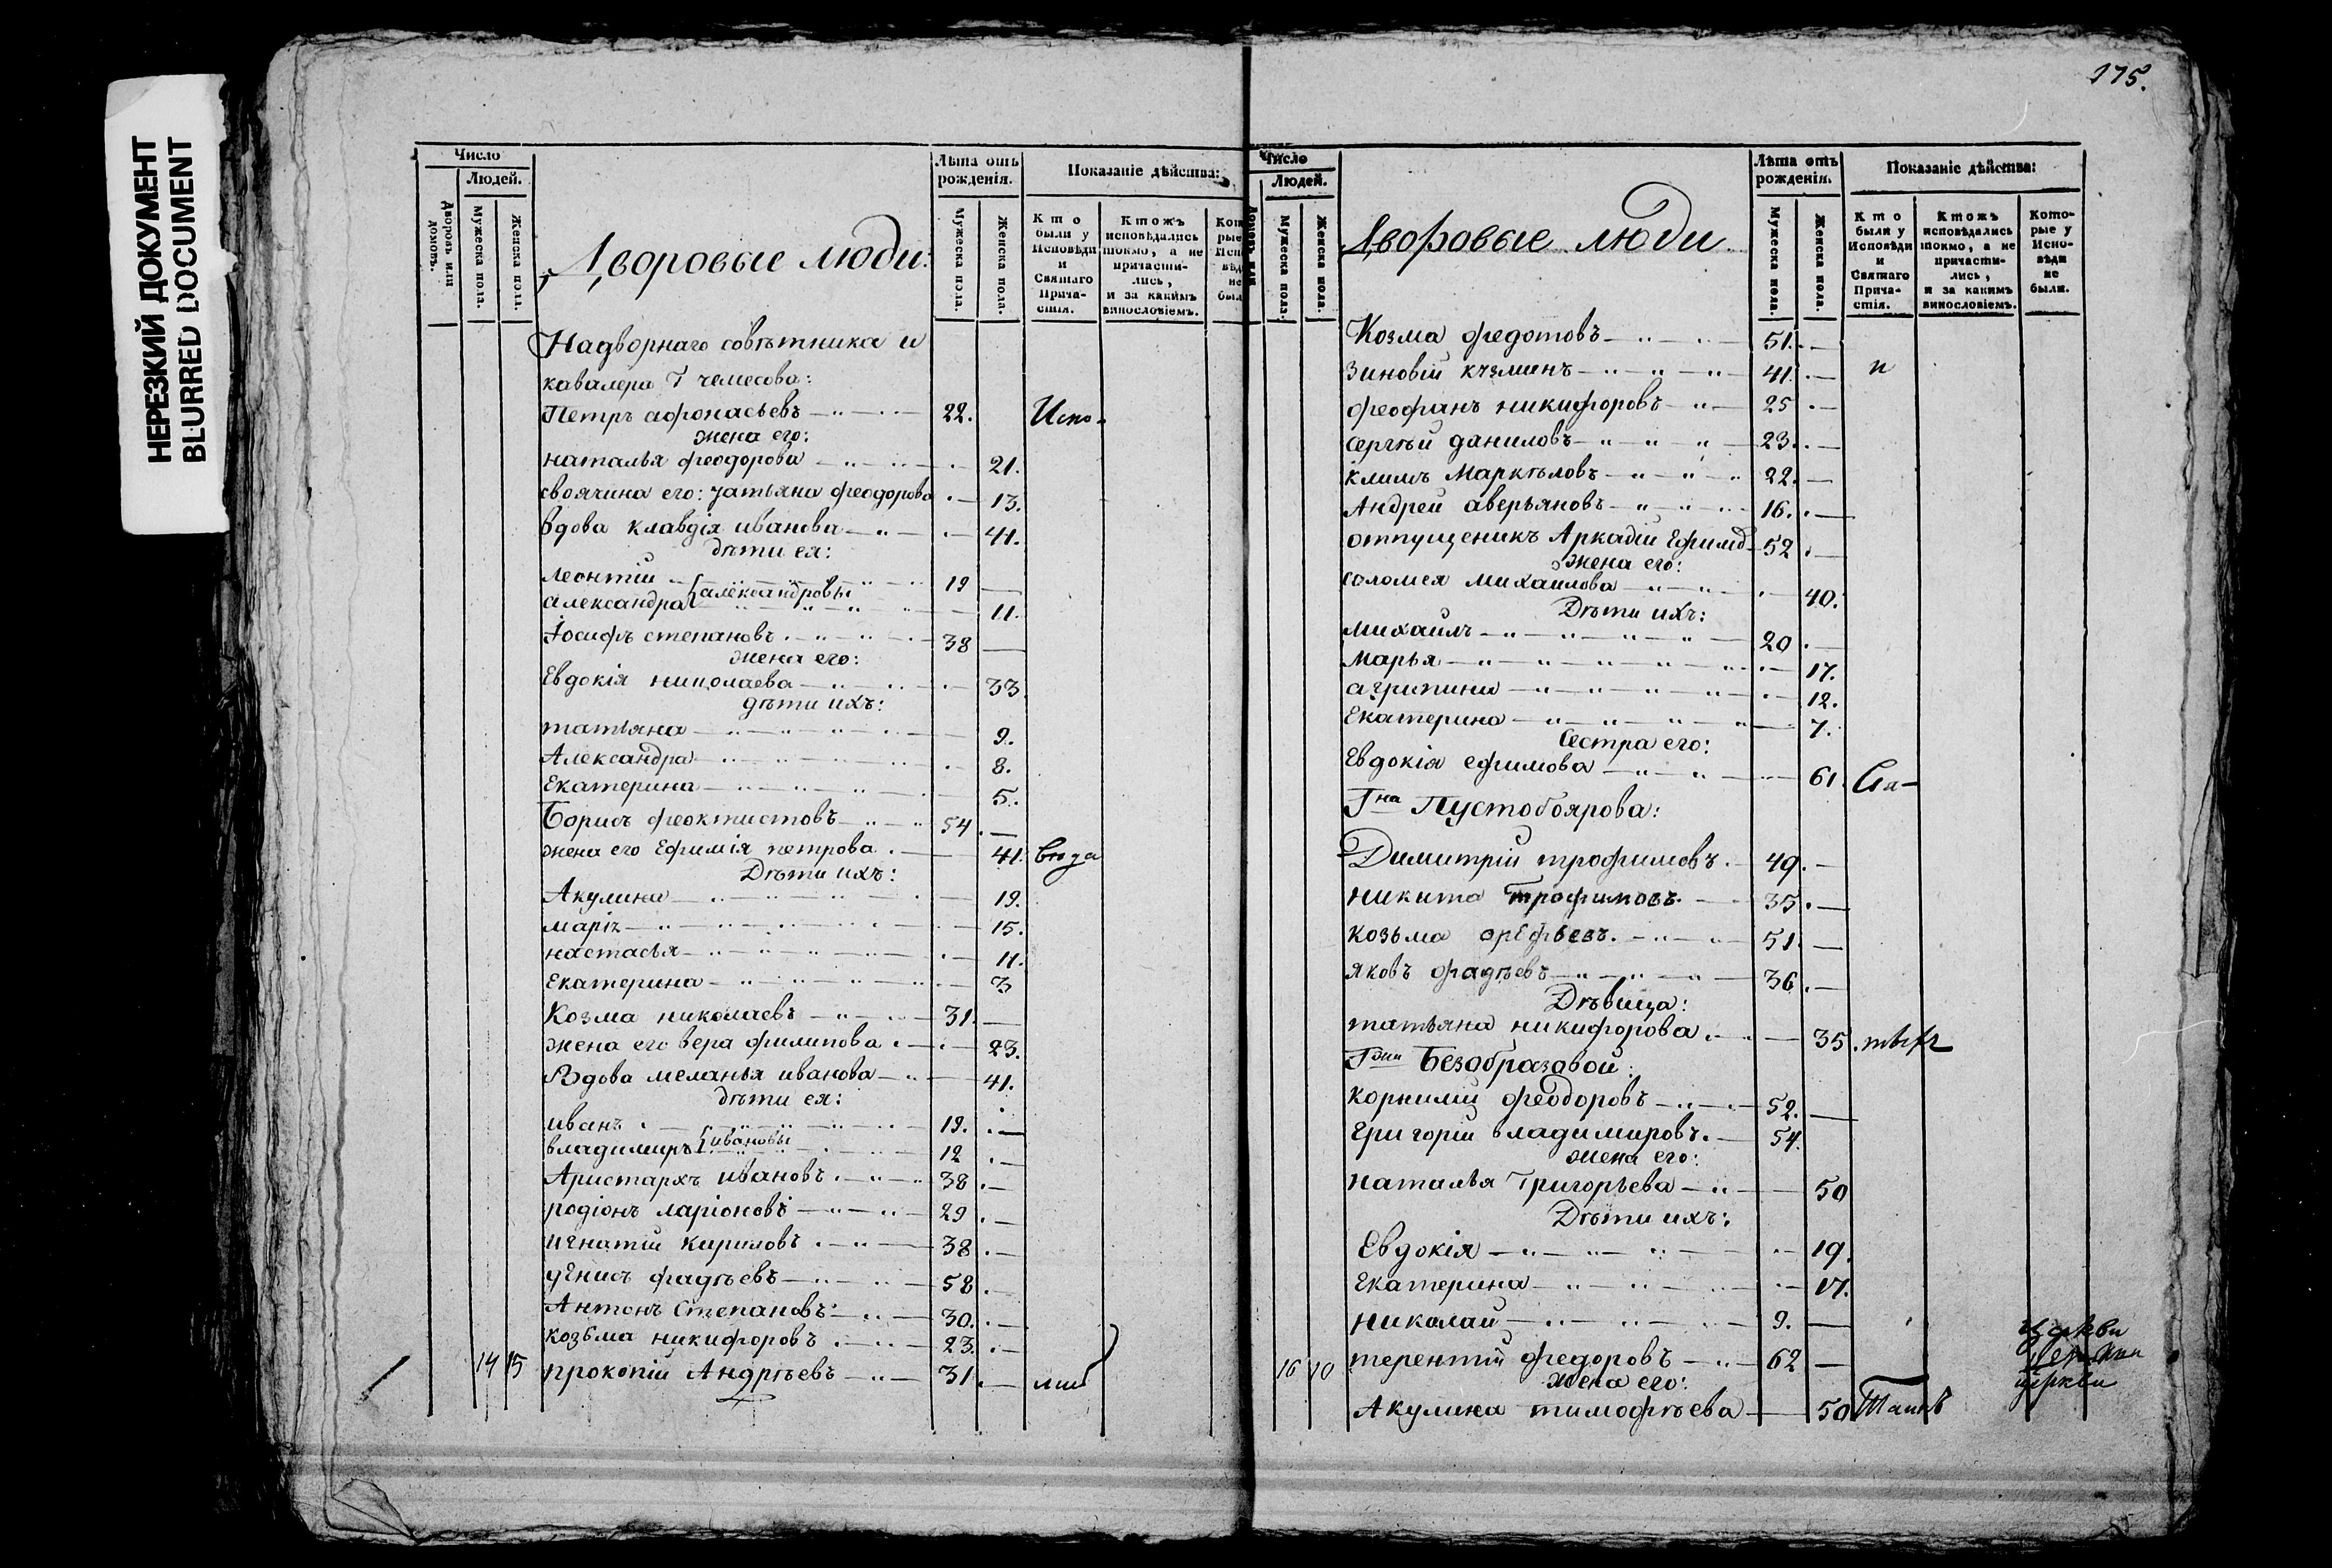 НЕРЕЗКИЙ ДОКУМЕНТ
BLURRED DOCUMENT
Число
Людей.
Дворовъ или домовъ.
Мужеска пола.
Женска пола.
Дворовые люди:
Лѣта отъ рожденія.
Мужеска пола.
Женска пола.
Показаніе дѣйства:
Кто были у Исповѣди и Святаго Прича-стія.
Ктожъ исповѣдались токмо, а не причасти-лись, и за какимъ винословіемъ.
Надворнаго совѣтника и
кавалера Г чемесова:
Петръ афонасьевъ 22. Испо-
жена его:
наталья феодорова 21.
своячина его: татьяна феодорова 13.
вдова клавдія иванова 41.
дѣти ея:
леонтіи 19
александровы
александра 11.
Іосифъ степановъ 38
жена его:
Евдокія николаева 33
дѣти ихъ:
татьяна 9.
Александра 8.
Екатерина 5.
Борисъ феоктистовъ 54
жена его Ефимія петрова 41.
Дѣти ихъ:
Акулина 19.
марія 15.
настасья 11.
Екатерина 3
Козма николаевъ 31.
жена его вера филипова 23.
Вдова меланья иванова 41.
дѣти ея:
иванъ 19.
ивановы
владимиръ 12
Аристархъ ивановъ 38
родіонъ ларіоновъ 29
игнатіи кириловъ 38
денисъ фадѣевъ 58
Антонъ Степановъ 30.
козьма никифоровъ 23.
14 15 прокопіи Андрѣевъ 31.
175.
Число
Людей.
Мужеска пола.
Женска пола.
Дворовые люди
Лѣта отъ рожденія.
Мужеска пола.
Женска пола.
Показаніе дѣйства:
Кто были у Исповѣди и Святаго Прича-стія.
Ктожъ исповѣдались токмо, а не причасти-лись, и за какимъ винословіемъ.
Кото-рые у Испо-вѣди не были.
Козма федотовъ 51.
Зиновіи кузминъ 41. и
феофанъ никифоровъ 25
сергѣй даниловъ 23.
климъ Маркѣловъ 22.
Андреи аверьяновъ 16.
отпущеникъ Аркадіи Ефимо 52
жена его:
соломея михаилова 40.
Дѣти ихъ:
михаилъ 20
Марья 17.
агрипина 12.
Екатерина 7.
Сестра его:
Евдокія ефимова 61. Свя-
Гна Пустобоярова:
Димитріи трофимовъ 49.
никита Трофимовъ 35
козьма арефьевъ 51.
яковъ фадѣевъ 36
Дѣвица:
татьяна никифорова 35
Гжи Безобразовой:
корнилии феодоровъ 52.
григоріи владимировъ 54.
жена его:
наталья Григорьева 50
Дѣти ихъ:
Евдокія 19.
Екатерина 17.
николаи 9.
16 10 терентіи федоровъ 62
жена его:
Акулина тимофѣева 50 Таинъ
церкви